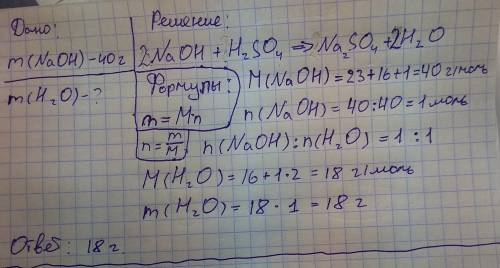 Дано:
Решение:
m(NaOH)-40г
2NaOH + H₂SO₄ ⇒ Na₂SO₄+2H₂O
m(H₂O)-?
Формулы:
m = M·n
n = m/M
M(NaOH) = 23+16+1=40 г/моль
n(NaOH) = 40:40=1 моль
n(NaOH):n(H₂O) = 1:1
M(H₂O) = 16+1·2 = 18 г/моль
m(H₂O) = 18·1 = 18 г
Ответ: 18 г.